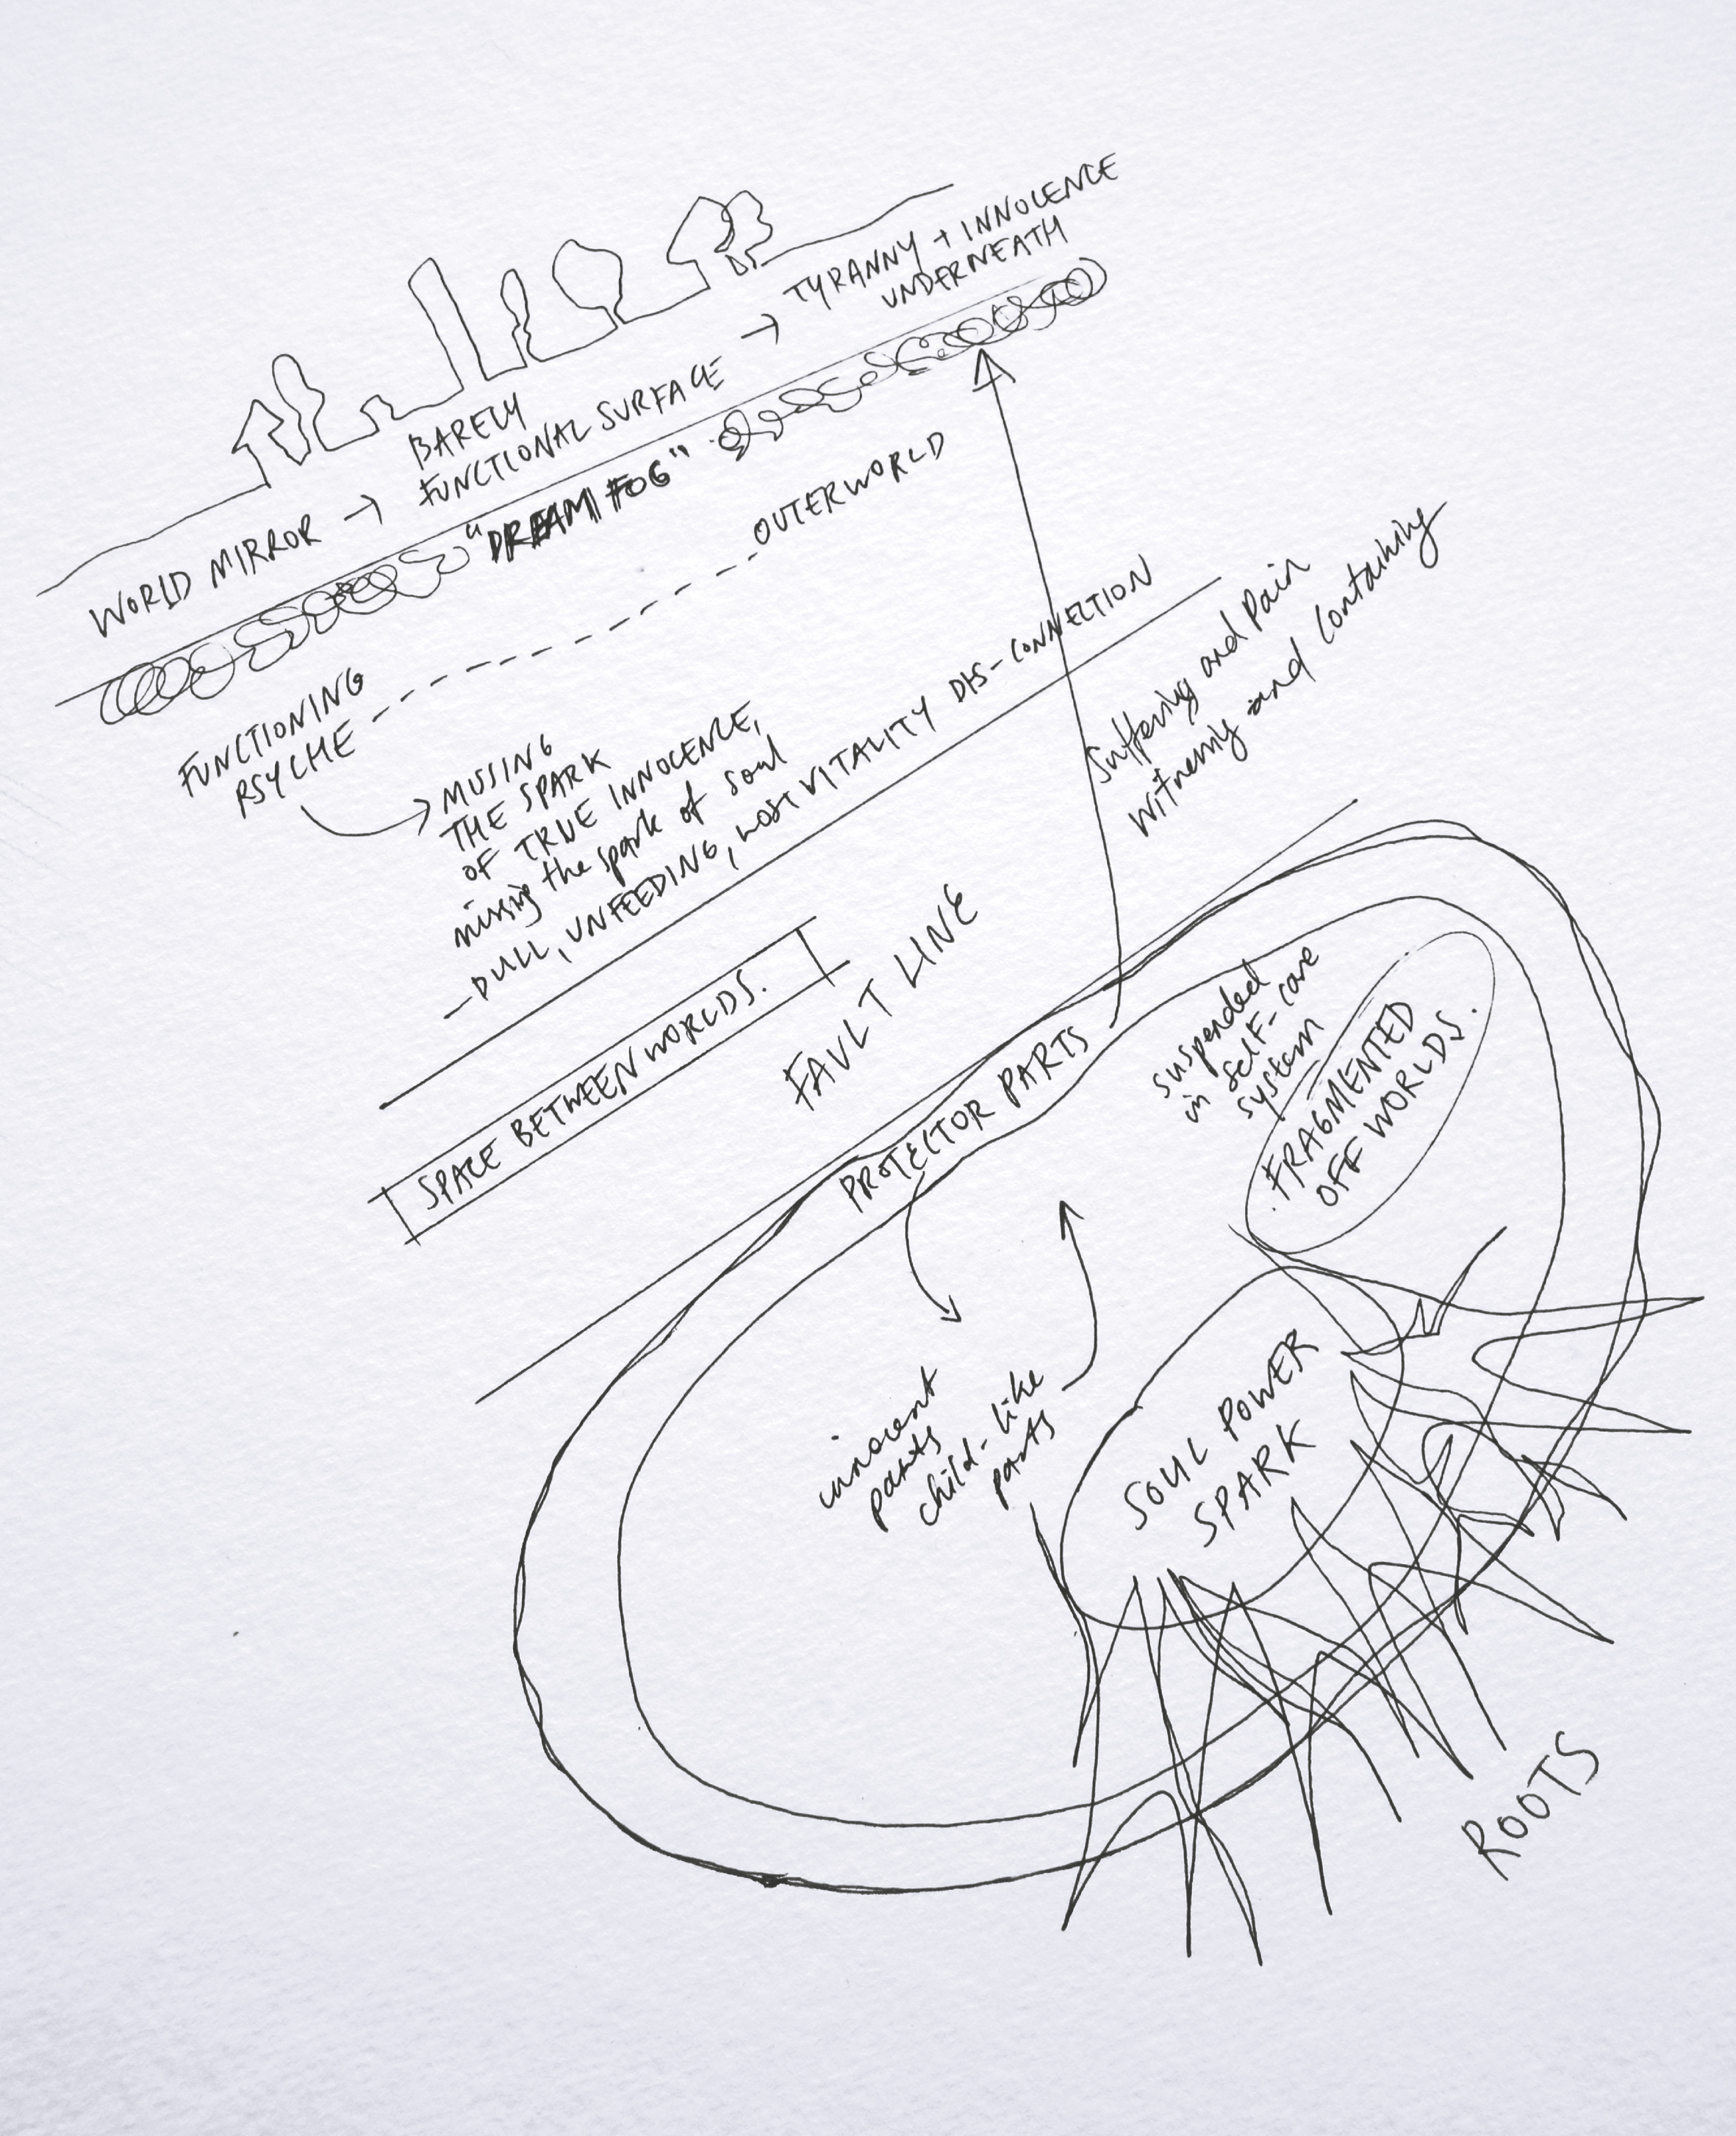 TYRANNY + INNOCENCE
UNDERNEATH
BARELY
WORLD MIRROR → FUNCTIONAL SURFACE →
"DREAM FOG"
OUTERWORLD
FUNCTIONING
PSYCHE
MISSING
THE SPARK
OF TRUE INNOCENCE,
missing the spark of soul
– DULL, UNFEEDING, LOST VITALITY DIS-CONNECTION
Suffering and Pain
Witnessing and Containing
SPACE BETWEEN WORLDS.
FAULT LINE
PROTECTOR PARTS
suspended
in self-care
system
FRAGMENTED
OFF WORLDS.
innocent
parts
child-like
parts
SOUL POWER
SPARK
ROOTS